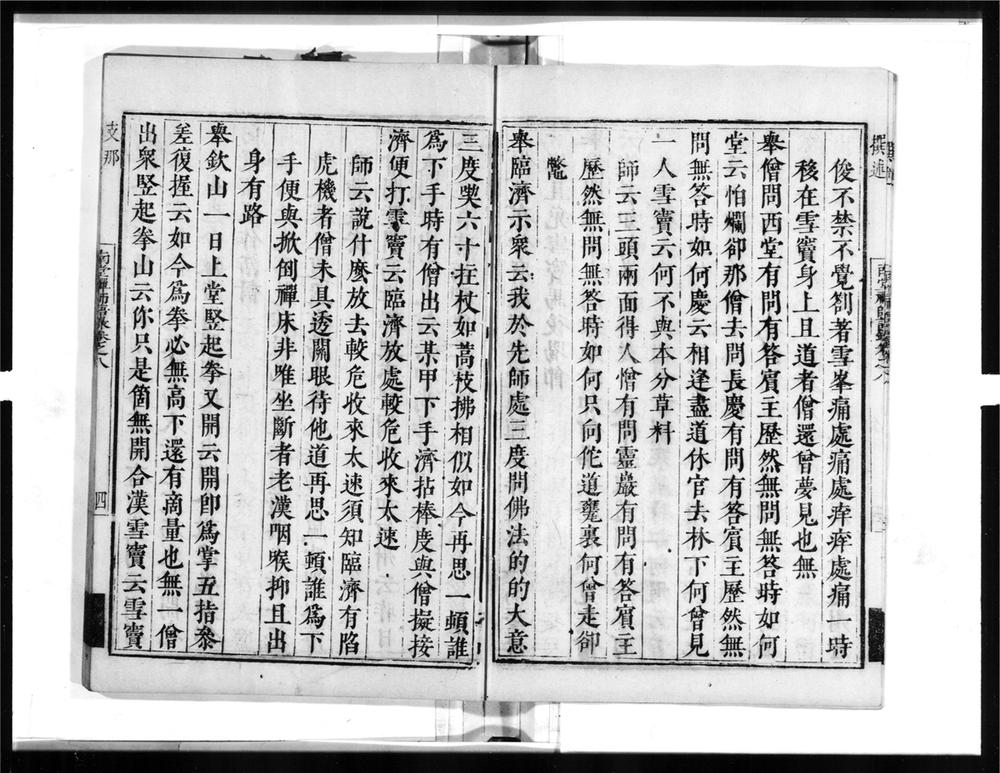 俊不禁不覺劄著雪峯痛處痛處痒痒處痛一時
移在雪竇身上且道者僧還曾夢見也無
舉僧問西堂有問有答賓主歷然無問無答時如何
堂云怕爛卻那僧去問長慶有問有答賓主歷然無
問無答時如何慶云相逢盡道休官去林下何曾見
一人雪竇云何不與本分草料
師云三頭兩面得人憎有問靈巖有問有答賓主
歷然無問無答時如何只向佗道甕裏何曾走卻
鼈
舉臨濟示衆云我於先師處三度問佛法的的大意
三度喫六十拄杖如蒿枝拂相似如今再思一頓誰
爲下手時有僧出云某甲下手濟拈棒度與僧擬接
濟便打雪竇云臨濟放處較危收來太速
師云說什麼放去較危收來太速須知臨濟有陷
虎機者僧未具透關眼待他道再思一頓誰爲下
手便與掀倒禪床非唯坐斷者老漢咽喉抑且出
身有路
舉欽山一日上堂竪起拳又開云開卽爲掌五指參
差復握云如今爲拳必無高下還有商量也無一僧
出衆竪起拳山云你只是箇無開合漢雪竇云雪竇
支那
撰述
南堂禪師語錄卷之八
四